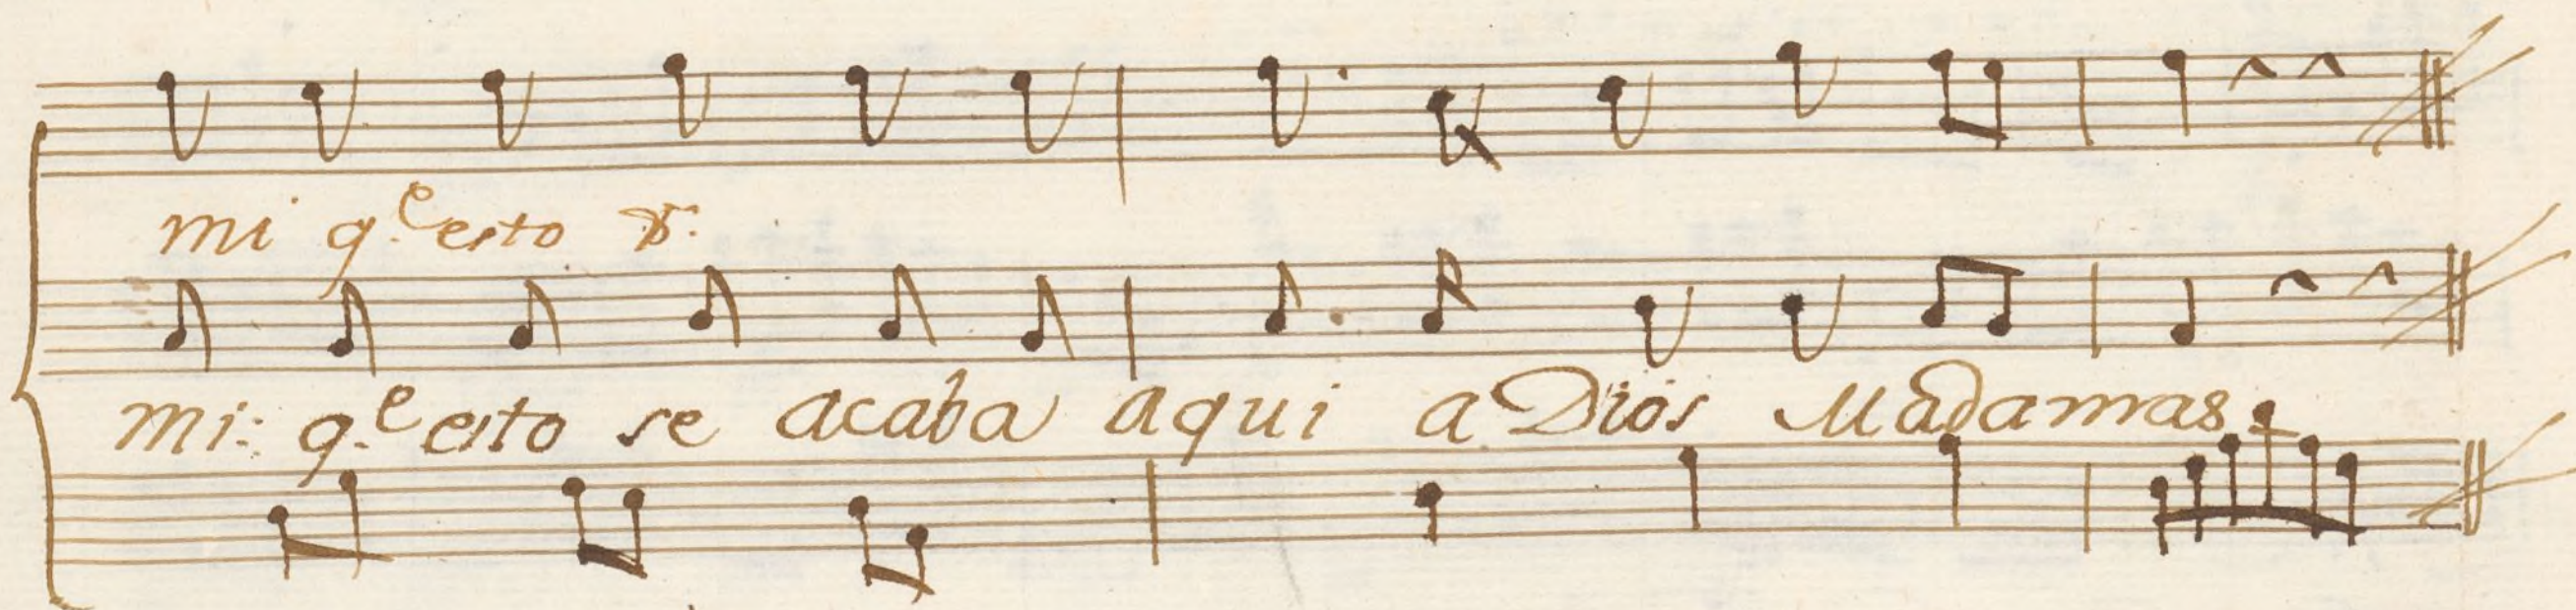 mi q.e esto &.
mi: q.e esto se acaba aqui a Dios Madamas.